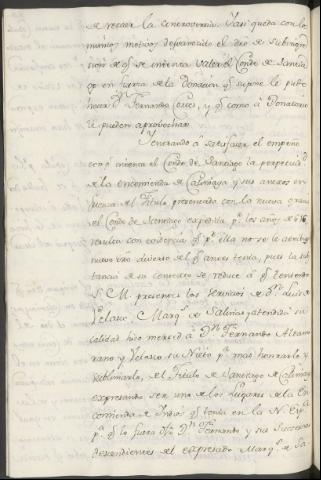 de recaer la Controversia. Y asi queda con lo
mismo motivo desvanecido el dro de
que se intenta valer el Conde de Santia
go en fuerza de la Donacion qe supone le pudo
hacer Dn Fernando Cortes, y qe como á Donatario
le pueden aprovechar.
Viniendo á satisfacer el empeño
con qe intenta el Conde de Santiago la perpetuidd
de la encomienda de Calimaya y sus anexos en
fuerza del Titulo presentado con la nueva gracia
el Conde de Santiago expedita pr los años de 616
resulta con evidencia qe pr ella no se le
nuevo dro diverso del qe antes tenia, pues la sub
stancia de su contexto se reduce á qe teniendo
S. M. presentes los servicios de Dn Luis de
Velasco Marqs de Salinas y atendida su
calidad hizo merced á Dn Fernando Altami
rano y Velasco su Nieto pa mas honrarlo y
sublimarlo, del Titulo de Santiago de Calimaya
expresando ser uno de los lugares de la En
comienda de Indios qe tenia en la N. Espa
pa qe lo fuera dho Dn Ferndo y sus Succesores
descendientes del expresado Marqs de Sa